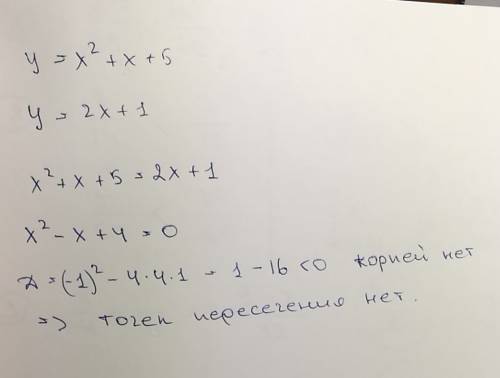 y = x² + x + 5
y = 2x + 1
x² + x + 5 = 2x + 1
x² - x + 4 = 0
D = (-1)² - 4·4·1 = 1 - 16 < 0 корней нет
=> точек пересечения нет.